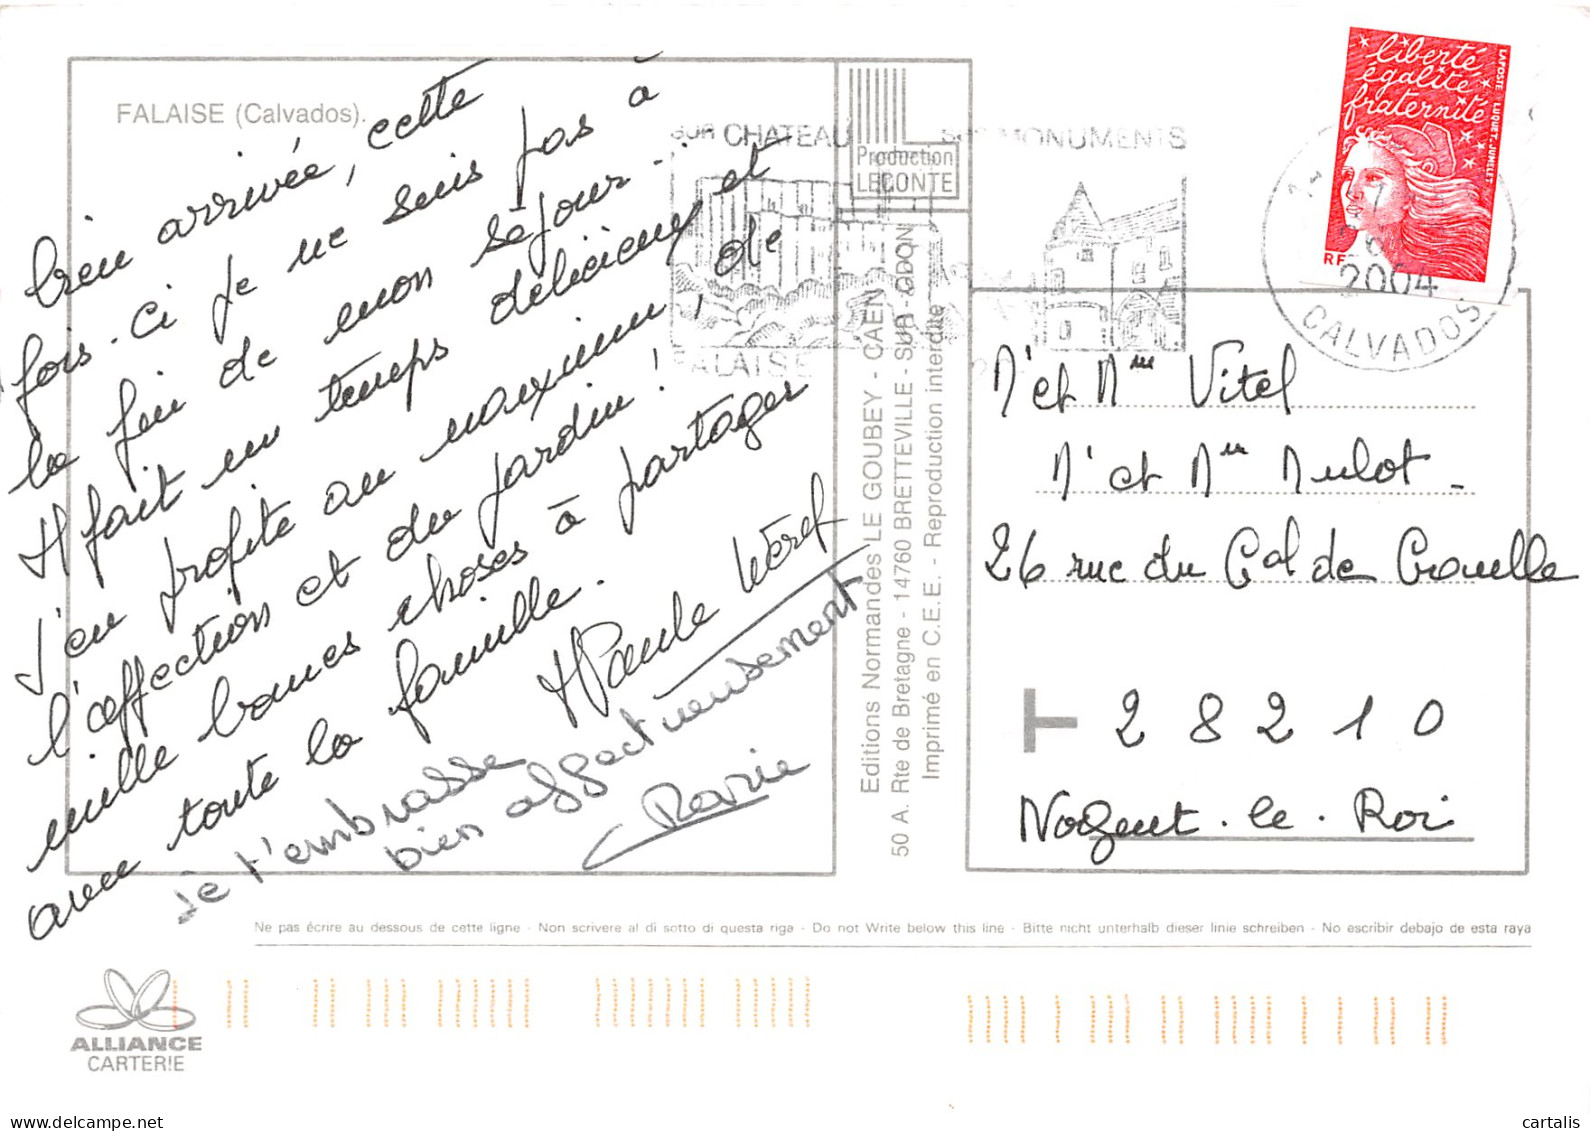 FALAISE (Calvados).
bien arrivée, cette
fois-ci je ne suis pas à
la fin de mon séjour..
Il fait un temps délicieux et
j'en profite au maximum, de
l'affection et du jardin!
mille bonnes choses à partager
avec toute la famille.
MPaule
Je t'embrasse
bien affectueusement
Marie
SUR CHATEAU
SES MONUMENTS
FALAISE
Production
LECONTE
Editions Normandes LE GOUBEY - CAEN
50 A. Rte de Bretagne - 14760 BRETTEVILLE - SUR - ODON -
Imprimé en C.E.E. - Reproduction interdite
liberté
égalité
fraternité
LAPOSTE LUQUET, JUMELET
RF
2004
CALVADOS
M' et Mme Vitel
M' et Mme Mulot -
26 rue du Gal de Crouelle
T 28210
Nogent-le-Roi
Ne pas écrire au dessous de cette ligne - Non scrivere al di sotto di questa riga - Do not Write below this line - Bitte nicht unterhalb dieser linie schreiben - No escribir debajo de esta raya
ALLIANCE
CARTERIE
www.delcampe.net
cartalis